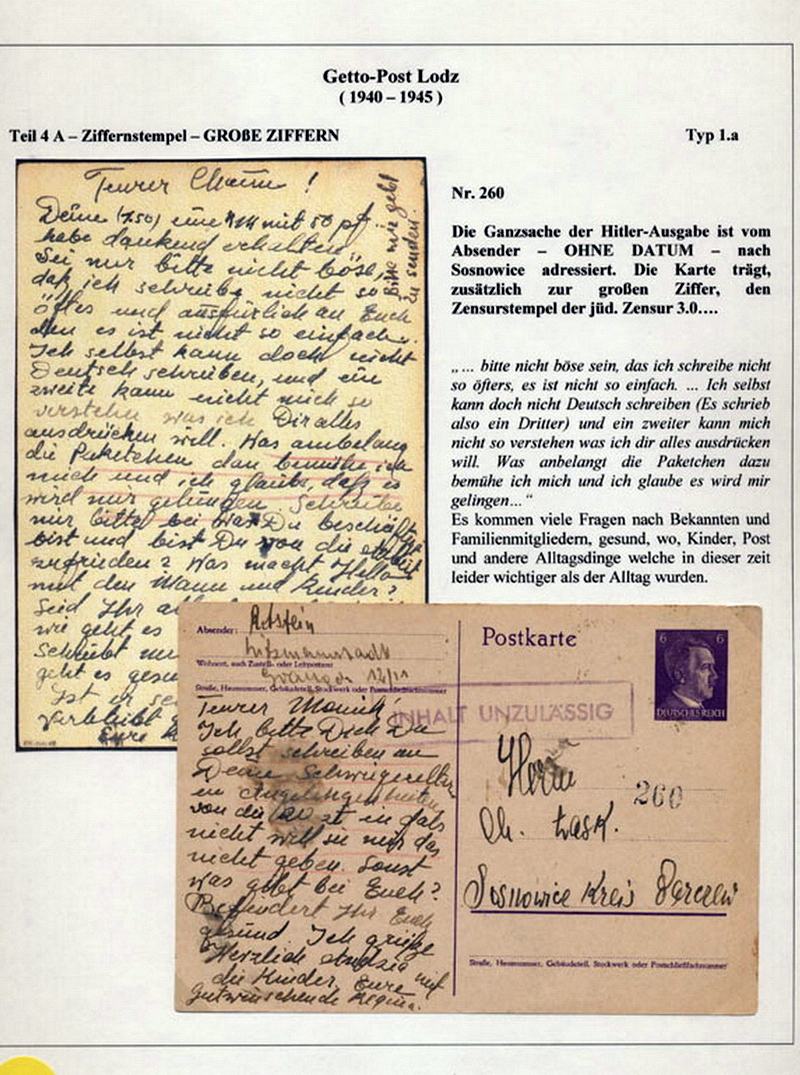 Getto-Post Lodz
( 1940 – 1945 )
Teil 4 A – Ziffernstempel – GROßE ZIFFERN
Typ 1.a
Teurer Chaim !
Deine (7.50) eine RM mit 50 pf.
habe dankend erhalten.
Sei nur bitte nicht böse,
daß ich schreibe nicht so
öftes und ausfürlich an Euch
den es ist nicht so einfach.
Ich selbst kann doch nicht
Deutsch schreiben, und ein
zweite kann nicht mich so
verstehn was ich Dir alles
ausdrücken will. Was ambelang
die Paketchen dan bemühe ich
mich und ich glaube, daß es
wird mir gelingen. Schreibe
mir bitte bei was Du beschäftigt
bist und bist Du von die
zufrieden? Was macht Hella
mit den Mann und Kinder?
Seid Ihr
wie geht es
Schreibt
geht es
Ist er
verbleibt
Eure
Bitte mir geld
zu senden.
Nr. 260
Die Ganzsache der Hitler-Ausgabe ist vom
Absender – OHNE DATUM – nach
Sosnowice adressiert. Die Karte trägt,
zusätzlich zur großen Ziffer, den
Zensurstempel der jüd. Zensur 3.0....
„... bitte nicht böse sein, das ich schreibe nicht
so öfters, es ist nicht so einfach. ... Ich selbst
kann doch nicht Deutsch schreiben (Es schrieb
also ein Dritter) und ein zweiter kann mich
nicht so verstehen was ich dir alles ausdrücken
will. Was anbelangt die Paketchen dazu
bemühe ich mich und ich glaube es wird mir
gelingen...“
Es kommen viele Fragen nach Bekannten und
Familienmitgliedern, gesund, wo, Kinder, Post
und andere Alltagsdinge welche in dieser zeit
leider wichtiger als der Alltag wurden.
Absender: Rotstein
Litzmannstadt
Wohnort, auch Zustell- oder Leitpostamt
12/11
Straße, Hausnummer, Gebäudeteil, Stockwerk oder Postschließfachnummer
Teurer Moniek!
Ich bitte Dich Du
sollst schreiben an
Deine Schwiegereltern
in Angelegenheiten
von die 20 zt in fals
nicht will sie mir das
nicht geben. Sonst
was gibt bei Euch?
Befindert Ihr Euch
gesund. Ich grüße
Herzlich Andzia mit
die Kinder, Eure
gutwünschende Regina.
Postkarte
6 6
DEUTSCHES REICH
INHALT UNZULÄSSIG
Herrn
260
Ch. Lask.
Sosnowice Kreis
Straße, Hausnummer, Gebäudeteil, Stockwerk oder Postschließfachnummer